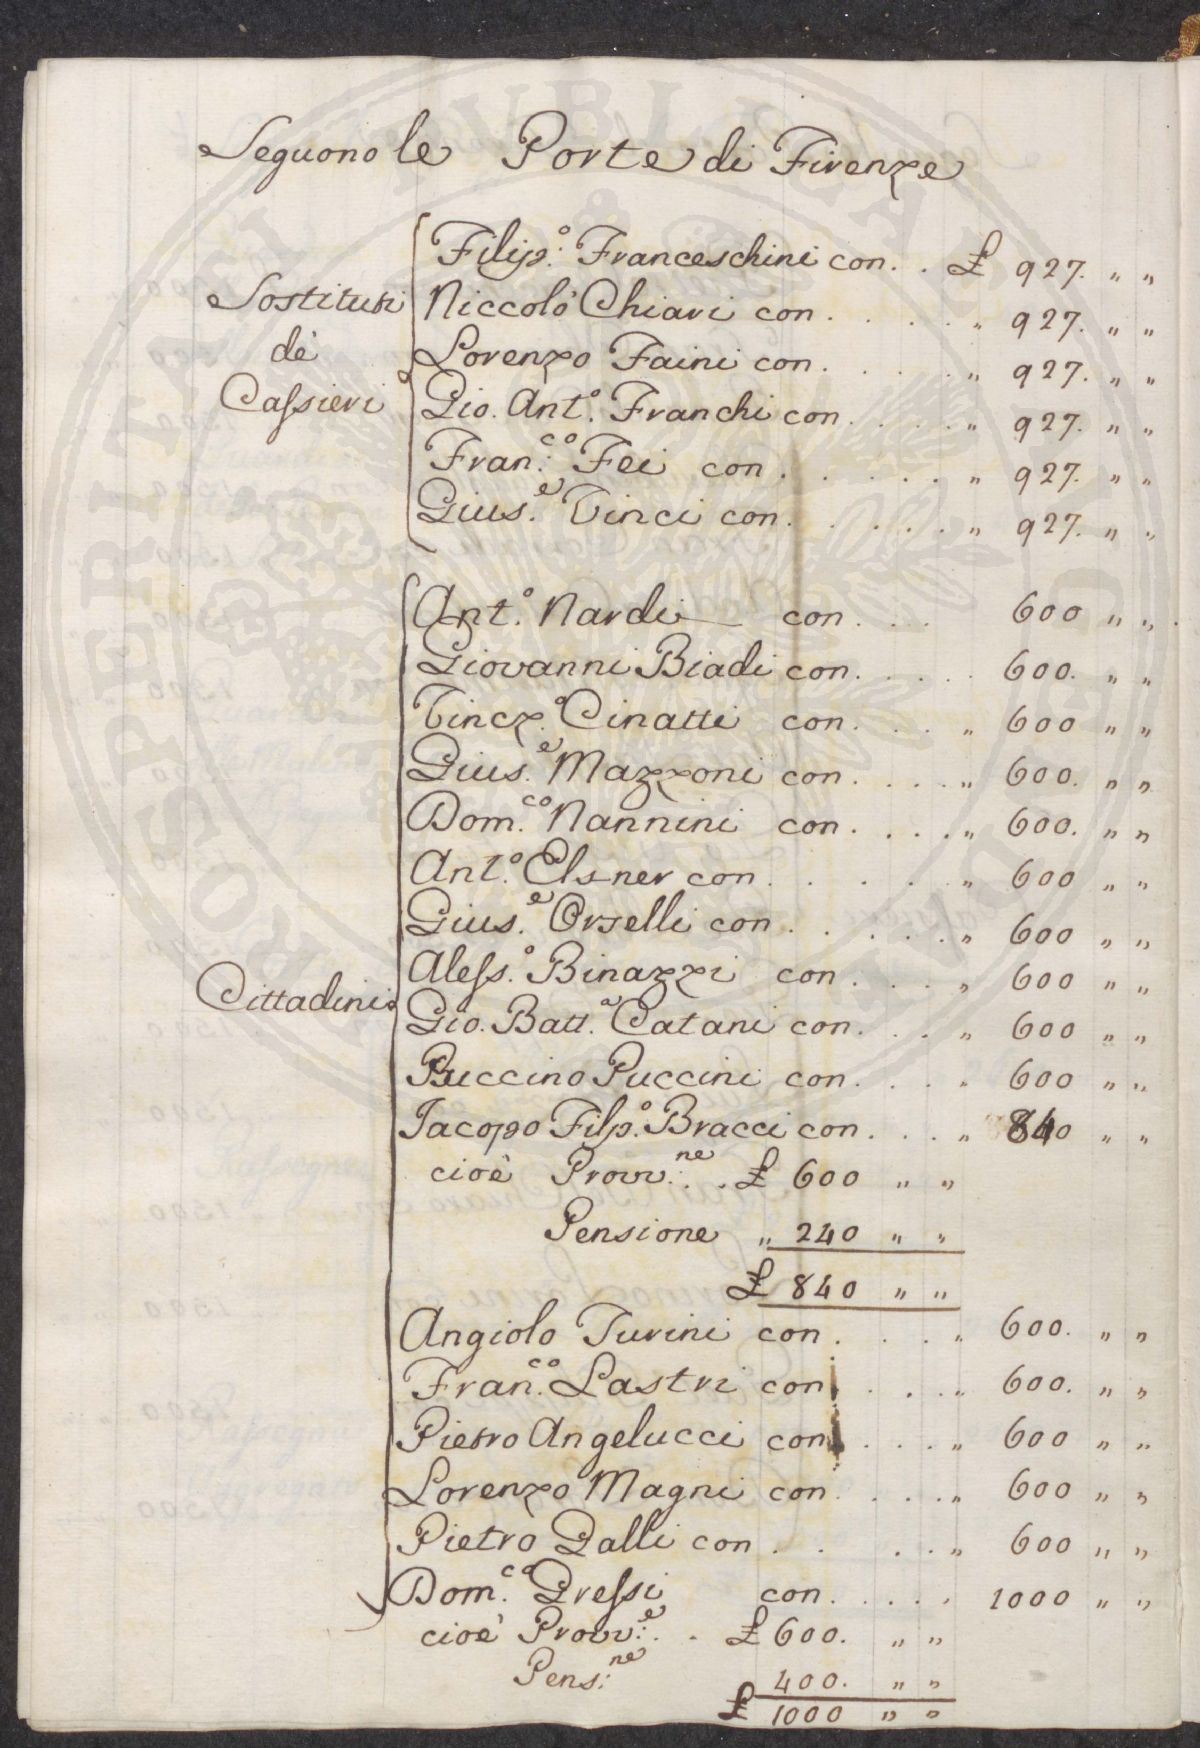 Seguono le Porte di Firenze
Filip.º Franceschini con . . £ 927. " "
Sostituti Niccolò Chiari con . . . . . " 927. " "
de' Lorenzo Faini con . . . . . " 927. " "
Cassieri Gio. Ant.º Franchi con . . . . " 927. " "
Fran.co Fei con . . . . . . " 927. " "
Gius.e Vinci con . . . . . " 927. " "
Ant.º Nardi con . . . 600 " "
Giovanni Biadi con . . . . . 600. " "
Vincz.º Cinatti con . . . " 600 " "
Gius.e Mazzoni con . . . . " 600. " "
Dom.co Nannini con . . . . " 600. " "
Ant.º Elsner con . . . . . " 600 " "
Gius.e Orselli con . . . . . " 600 " "
Aless.º Binazzi con . . . " 600 " "
Cittadini
Gio. Batt.a Catani con . . . " 600 " "
Puccino Puccini con . . . " 600 " "
Jacopo Filp.º Bracci con . . . " 840 " "
cioè Provv.ne . . £ 600 " "
Pensione " 240 " "
£ 840 " "
Angiolo Turini con . . . " 600. " "
Fran.co Lastri con . . . " 600. " "
Pietro Angelucci con . . . " 600 " "
Lorenzo Magni con . . . . " 600 " "
Pietro Galli con . . . . " 600 " "
Dom.co Gressi con . . . . . 1000 " "
cioè Provv.e . . £ 600. " "
Pens.ne 400. " "
£ 1000 " "
PROSPERITATI PUBLICAE